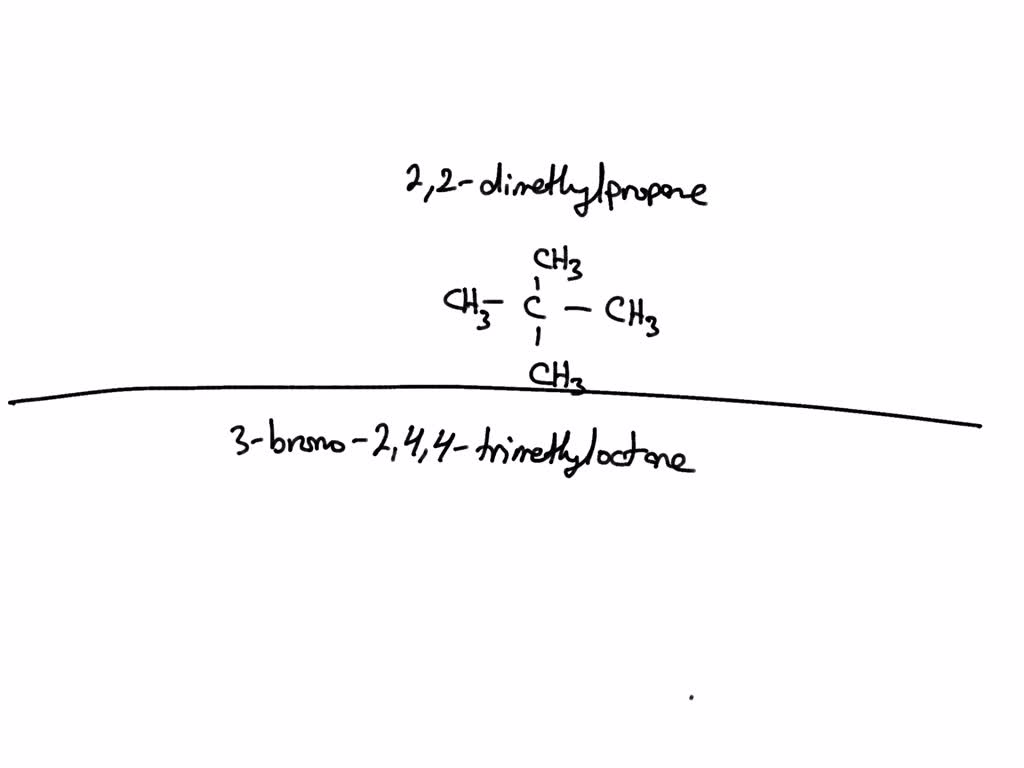 2,2-dimethylpropane
CH3
CH3- C - CH3
CH3
3-bromo-2,4,4-trimethyloctane